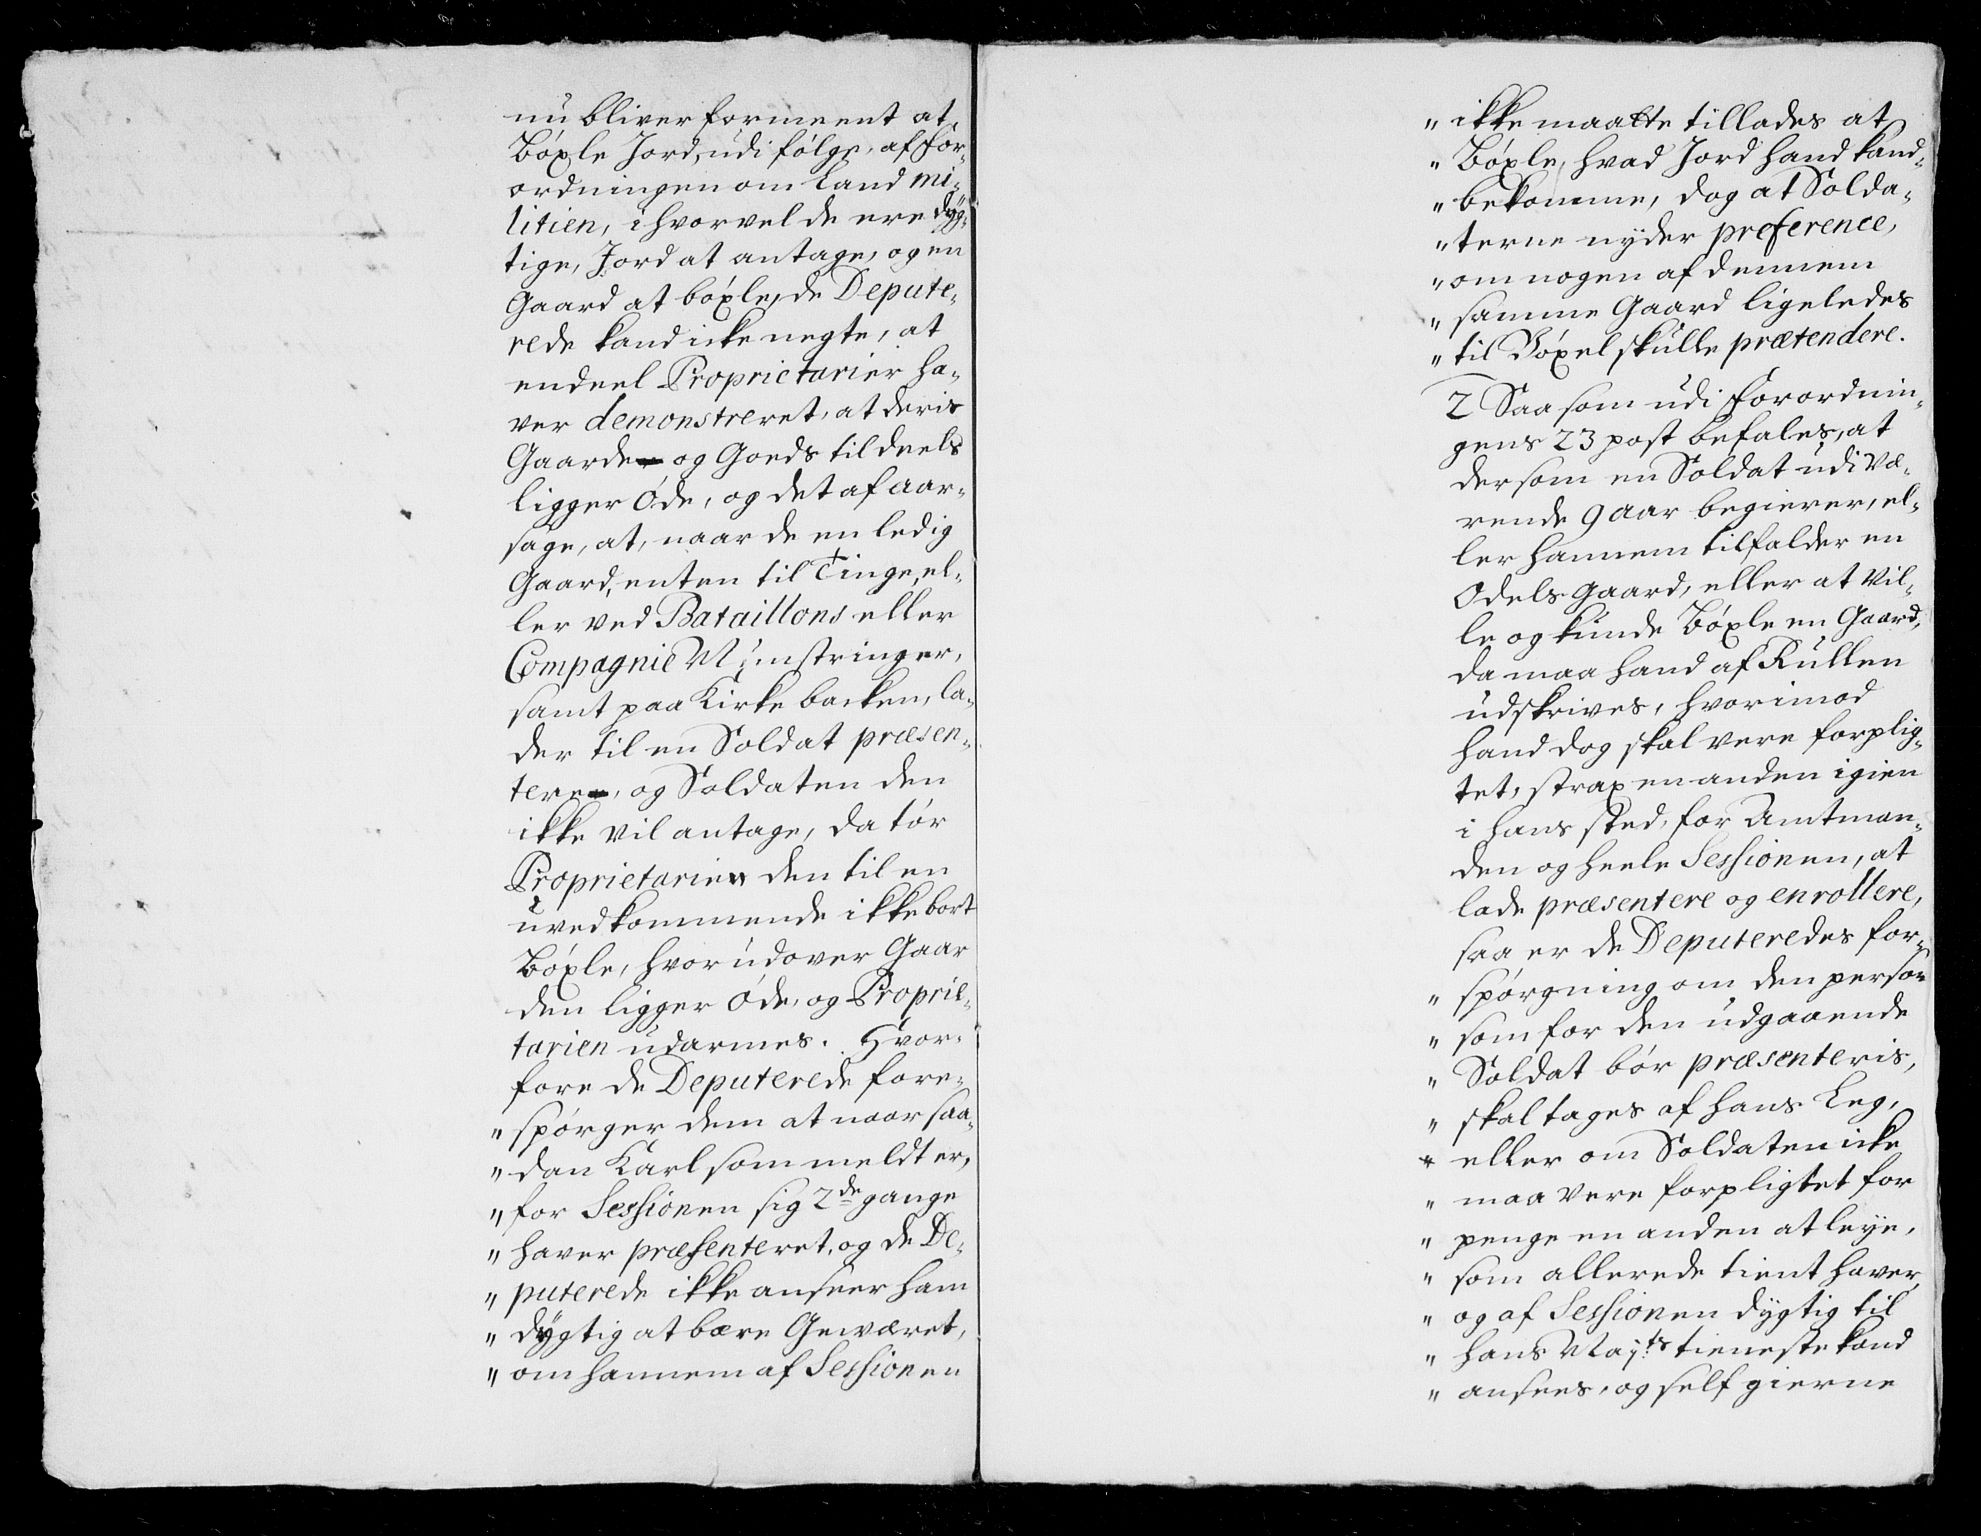 nu bliver formeent at
Bøxle Jord, udi følge, af For-
ordningen om Land mi-
litien, ihvorvel de ere dyg-
tige, Jord at antage, og en
Gaard at bøxle, de Depute-
rede kand icke negte, at
endeel Proprietarier ha-
ver demonstreret, at deris
Gaarde og Goeds til deels
ligger Øde, og det af aar-
sage, at, naar de en ledig
Gaard, enten til Tinge, el-
ler ved Bataillons eller
Compagnie Mynstringer,
samt paa Kirke backen, la-
der til en Soldat præsen-
tere, og Soldaten den
ikke vil antage, da tør
Proprietarien den til en
uvedkommende ikke bort
Bøxle, hvor udover Gaar
den ligger Øde, og Proprie-
tarien udarmes. Hvor-
fore de Deputerede fore-
" spørger dem at naar saa-
" dan Karl som meldt er,
" for Sessionen sig 2de gange
" haver præsenteret, og de De-
" puterede ikke anseer ham
" dygtig at bære Geværet,
" om hannem af Sessionen
" ikke maatte tillades at
" Bøxle, hvad Jord hand kand
" bekomme, dog at Solda-
" terne nyder preference,
" om nogen af dennem
" samme Gaard ligeledes
" til Bøxel skulle prætendere.
2 Saasom udi Forordnin-
gens 23 post befales, at
dersom en Soldat udi væ-
rende 9 aar begierer, el-
ler hannem tilfalder en
Odels Gaard, eller at vil-
le og kunde Bøxle en Gaard,
da maa hand af Rullen
udskrives, hvorimod
hand dog skal vere forplig-
tet, strax en anden igien
i hans sted, for Amtman-
den og heele Sessionen, at
lade præsentere og enrollere,
saa er de Deputeredes for-
" spørgning om den person
" som for den udgaaende
" Soldat bør præsenteris,
" skal tages af hans Leg,
" eller om Soldaten icke
" maa vere forpligtet for
" penge en anden at leye,
" som allerede tient haver,
" og af Sessionen dygtig til
" hans Mayts tieneste kand
" ansees, og self gierne